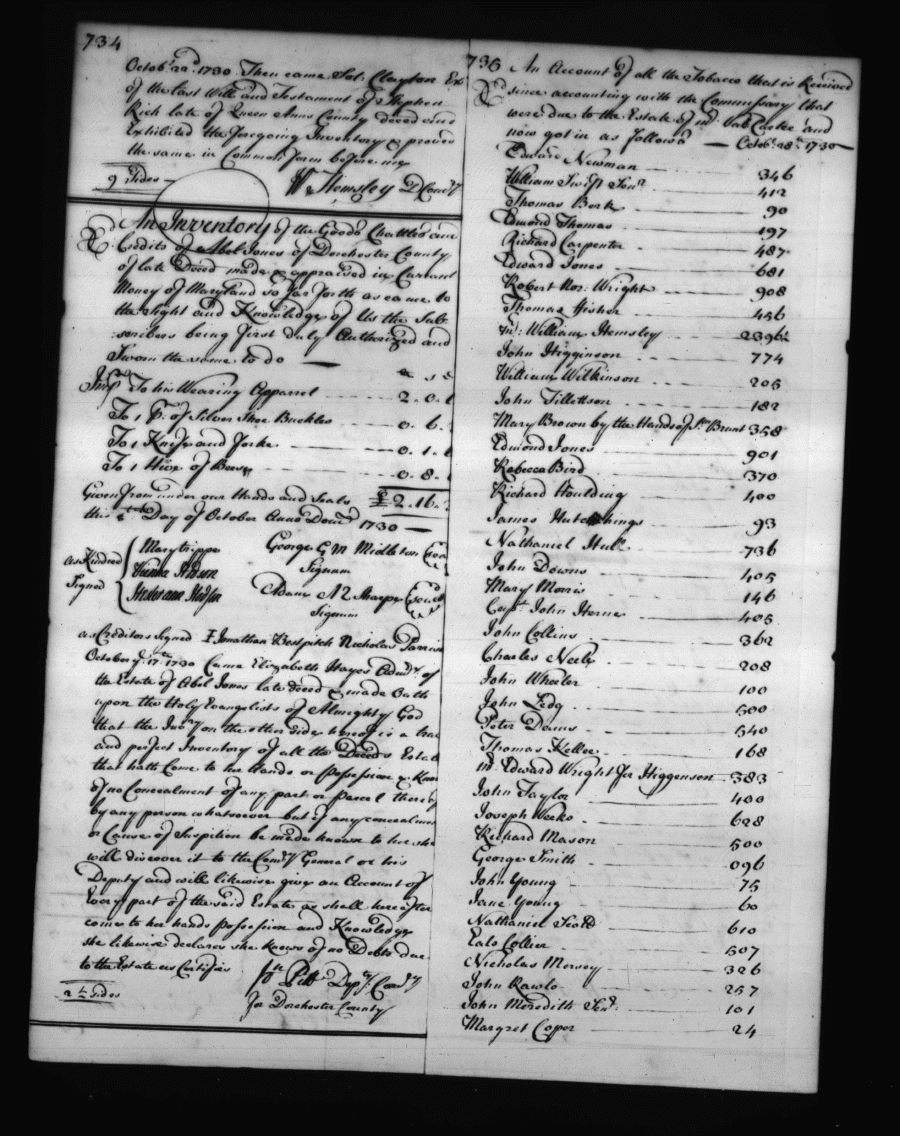 734
Octobr. 22d. 1730. Then came Sol: Clayton Exr
of the Last Will and Testament of Stephen
Rich late of Queen Anns County deced and
Exhibited the foregoing Inventory & proved
the same in Common form before me
9 Sides W Hemsley D Comry
An Inventory of the Goods Chattles and
Credits of Abel Jones of Dorchester County
of late Deced made & appraised in Currant
Money of Maryland so far forth as came to
the Sight and Knowledge of Us the Sub
:scribers being first duly Authorized and
Sworn the same to do
Imps To his Wearing Apparrel 2.0.
To 1 pr. of Silver Shoe Buckles 0.6.
To 1 Knife and forke 0.1.
To 1 Hive of Bees 0.8.
Given from under our Hands and Seals £2.16.
this Day of October Anno Domi 1730
Mary trippe George G M Middleton
as Kindred Signum
Signed Adam A Z Sharpe
Signum
as Creditors Signed I Jonathan Bestpitch Nicholas
October ye. 17th. 1730 Came Elizabeth Hayes Admx. of
the Estate of Abel Jones late deced & made Oath
upon the Holy Evangelists of Almighty God
that the Invry on the other side hereof is a true
and perfect Inventory of all the Deceds Estate
that hath Come to her Hands or Possession & Knows
of no Concealment of any part or Parcel thereof
by any person whatsoever but if any concealment
or Cause of Suspition be made known to her she
will discover it to the Comry General or his
Deputy and will likewise give an Account of
Every part of the said Estate as shall hereafter
come to her hands Possession and Knowledge
she likewise declares she knows of no Debts due
to the Estate as Certifies Jn Pitt Depy. Comry
2 ½ Sides for Dorchester County
735 An Account of all the Tobacco that is Received
since accounting with the Commissary that
were due to the Estate of Mr. Val: Carter and
now got in as followd Octobr. 28th. 1730
Edward Newman 346
William Swift Senr 412
Thomas Bork 90
Edmond Thomas 197
Richard Carpenter 487
Edward Jones 681
Robert Nor: Wright 908
Thomas Fisher 456
Mr: William Hemsley 2396½
John Higginson 774
William Wilkinson 205
John Tillottson 182
Mary Brown by the Hands of Brunt 358
Edmond Jones 901
Rebecca Bird 370
Richard Houlding 400
James Hutchings 93
Nathaniel Hul 736
John Downs 405
Mary Morris 146
Capt. John Herne 405
John Collins 362
Charles Neely 208
John Wheeler 100
John Ledg 500
Peter Downs 540
Thomas Kellee 168
Mr. Edward Wright for Higgenson 383
John Taylor 400
Joseph Weeks 628
Richard Mason 500
George Smith 096
John Young 75
Jane Young 60
Nathaniel Scott 610
Eals Collier 507
Nicholas Mersey 326
John Rawls 257
John Meredith Senr. 101
Margret Coper 24